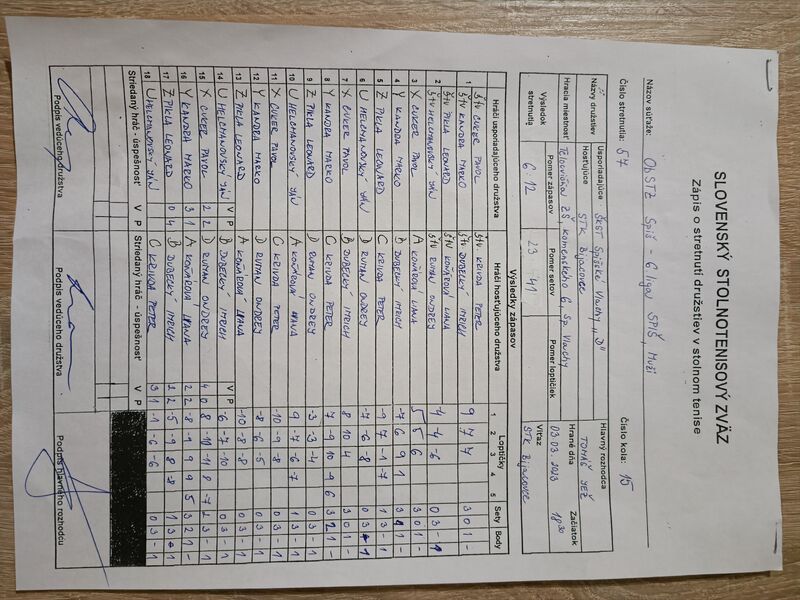 SLOVENSKÝ STOLNOTENISOVÝ ZVÄZ
Zápis o stretnutí družstiev v stolnom tenise
Názov súťaže: ObSTZ Spiš - 6 liga SPIŠ, Muži
Číslo stretnutia: 57 Číslo kola: 15
Názvy družstiev Usporiadajúce ŠKST Spišské Vlachy "D" Hlavný rozhodca
Hosťujúce STK Bijacovce TOMÁŠ JEŽ
Hracia miestnosť Telocvičňa ZŠ, Komenského 6, Sp. Vlachy Hrané dňa Začiatok
03.03.2023 18:30
Výsledok stretnutia Pomer zápasov Pomer setov Pomer loptičiek Víťaz
6:12 23 41 STK Bijacovce
Výsledky zápasov
Hráči usporiadajúceho družstva Hráči hosťujúceho družstva Loptičky Sety Body
1 2 3 4 5
1 Štv CUKER PAVOL Štv KRIVDA PETER 9 7 7 3 0 1 -
Štv KANDRA MARKO Štv DUBECKÝ IMRICH
2 Štv PIKLA LEONARD Štv KOŇÁROVÁ LIANA -7 -4 -6 0 3 - 1
Štv HELCMANOVSKÝ JÁN Štv RUMAN ONDREJ
3 X CUKER PAVOL A KOŇÁROVÁ LIANA 5 5 6 3 0 1 -
4 Y KANDRA MARKO B DUBECKÝ IMRICH -7 6 9 1 3 1 1 -
5 Z PIKLA LEONARD C KRIVDA PETER -9 7 -1 -7 1 3 - 1
6 U HELCMANOVSKÝ JÁN D RUMAN ONDREJ -7 -6 -8 0 3 - 1
7 X CUKER PAVOL B DUBECKÝ IMRICH 8 10 4 3 0 1 -
8 Y KANDRA MARKO C KRIVDA PETER 7 -9 10 -9 6 3 2 1 -
9 Z PIKLA LEONARD D RUMAN ONDREJ -3 -3 -4 0 3 - 1
10 U HELCMANOVSKÝ JÁN A KOŇÁROVÁ LIANA 9 -7 -6 -7 1 3 - 1
11 X CUKER PAVOL C KRIVDA PETER -10 -9 -8 0 3 - 1
12 Y KANDRA MARKO D RUMAN ONDREJ -8 -6 -5 0 3 - 1
13 Z PIKLA LEONARD A KOŇÁROVÁ LIANA -10 -8 -8 0 3 - 1
14 U HELCMANOVSKÝ JÁN V P B DUBECKÝ IMRICH V P -6 -7 -10 0 3 - 1
15 X CUKER PAVOL 2 2 D RUMAN ONDREJ 4 0 8 -10 -11 8 -7 2 3 - 1
16 Y KANDRA MARKO 3 1 A KOŇÁROVÁ LIANA 2 2 -8 -9 9 9 5 3 2 1 -
17 Z PIKLA LEONARD 0 4 B DUBECKÝ IMRICH 2 2 -5 -9 8 1 3 - 1
18 U HELCMANOVSKÝ JÁN C KRIVDA PETER 3 1 -1 -6 -6 0 3 - 1
Striedaný hráč - úspešnosť V P Striedaný hráč - úspešnosť V P
Podpis vedúceho družstva Podpis vedúceho družstva Podpis hlavného rozhodcu